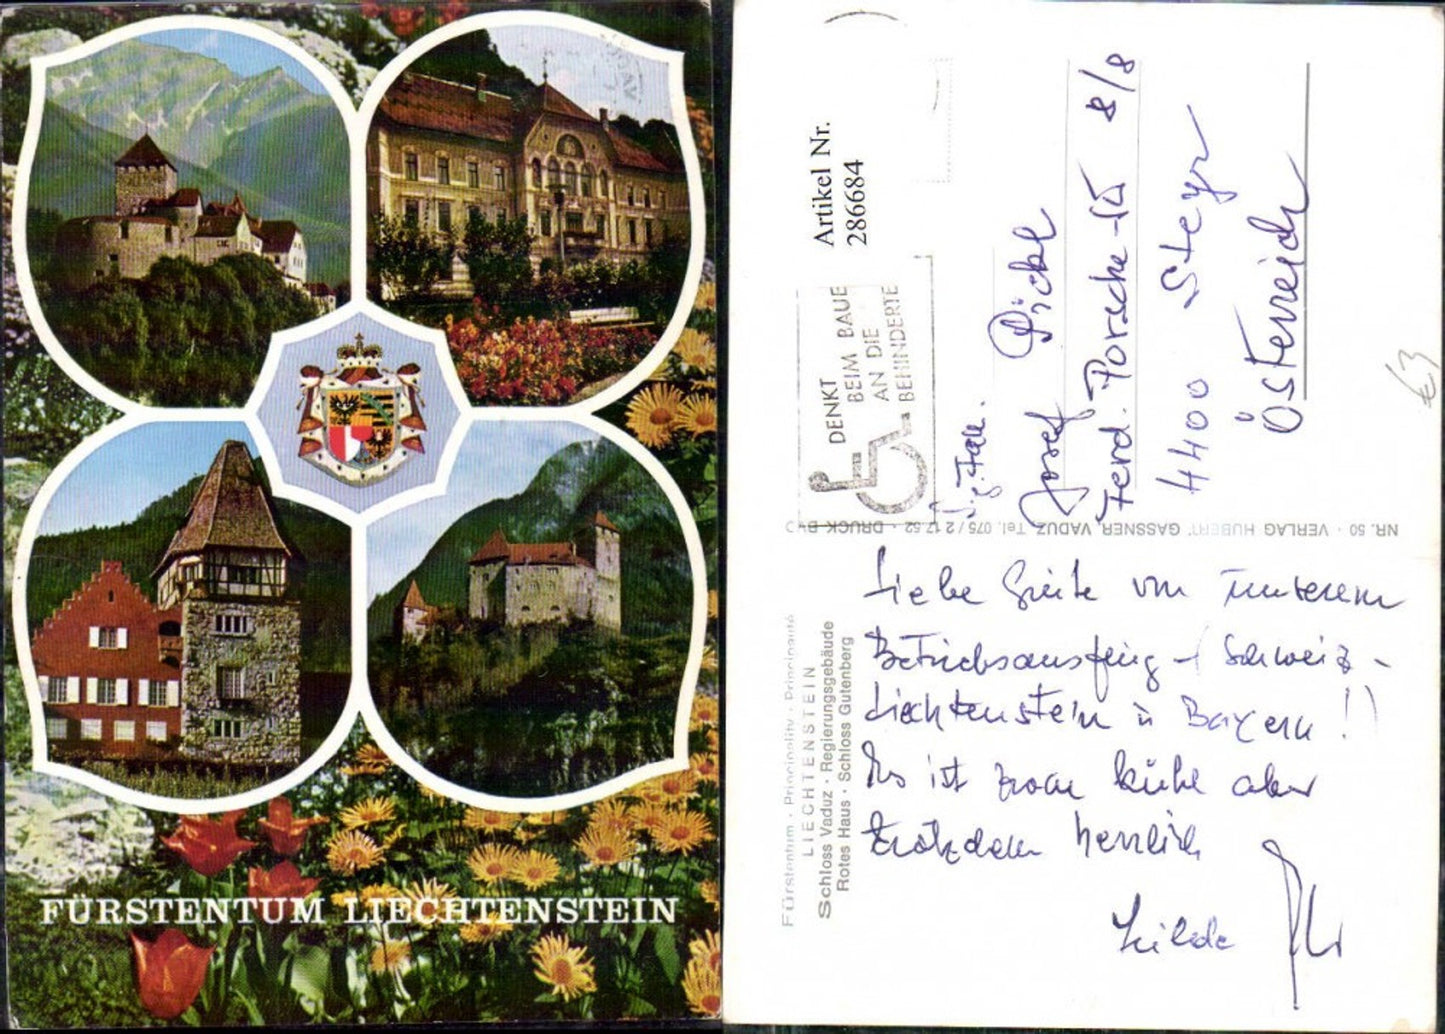 FÜRSTENTUM LIECHTENSTEIN
Artikel Nr.
286684
DENKT
BEIM BAUE
AN DIE
BEHINDERTE
Fam.
Josef Pickl
Ferd. Porsche-Str 8/8
4400 Steyr
Österreich
€3
NR. 50 · VERLAG HUBERT GASSNER, VADUZ, Tel. 075 / 2 17 52 · DRUCK
Fürstentum · Principality · Principauté
LIECHTENSTEIN
Schloss Vaduz · Regierungsgebäude
Rotes Haus · Schloss Gutenberg
Liebe Grüße von unserem
Betriebsausflug – (Schweiz-
Liechtenstein u Bayern!)
Es ist zwar kühl aber
trotzdem herrlich
Hilde